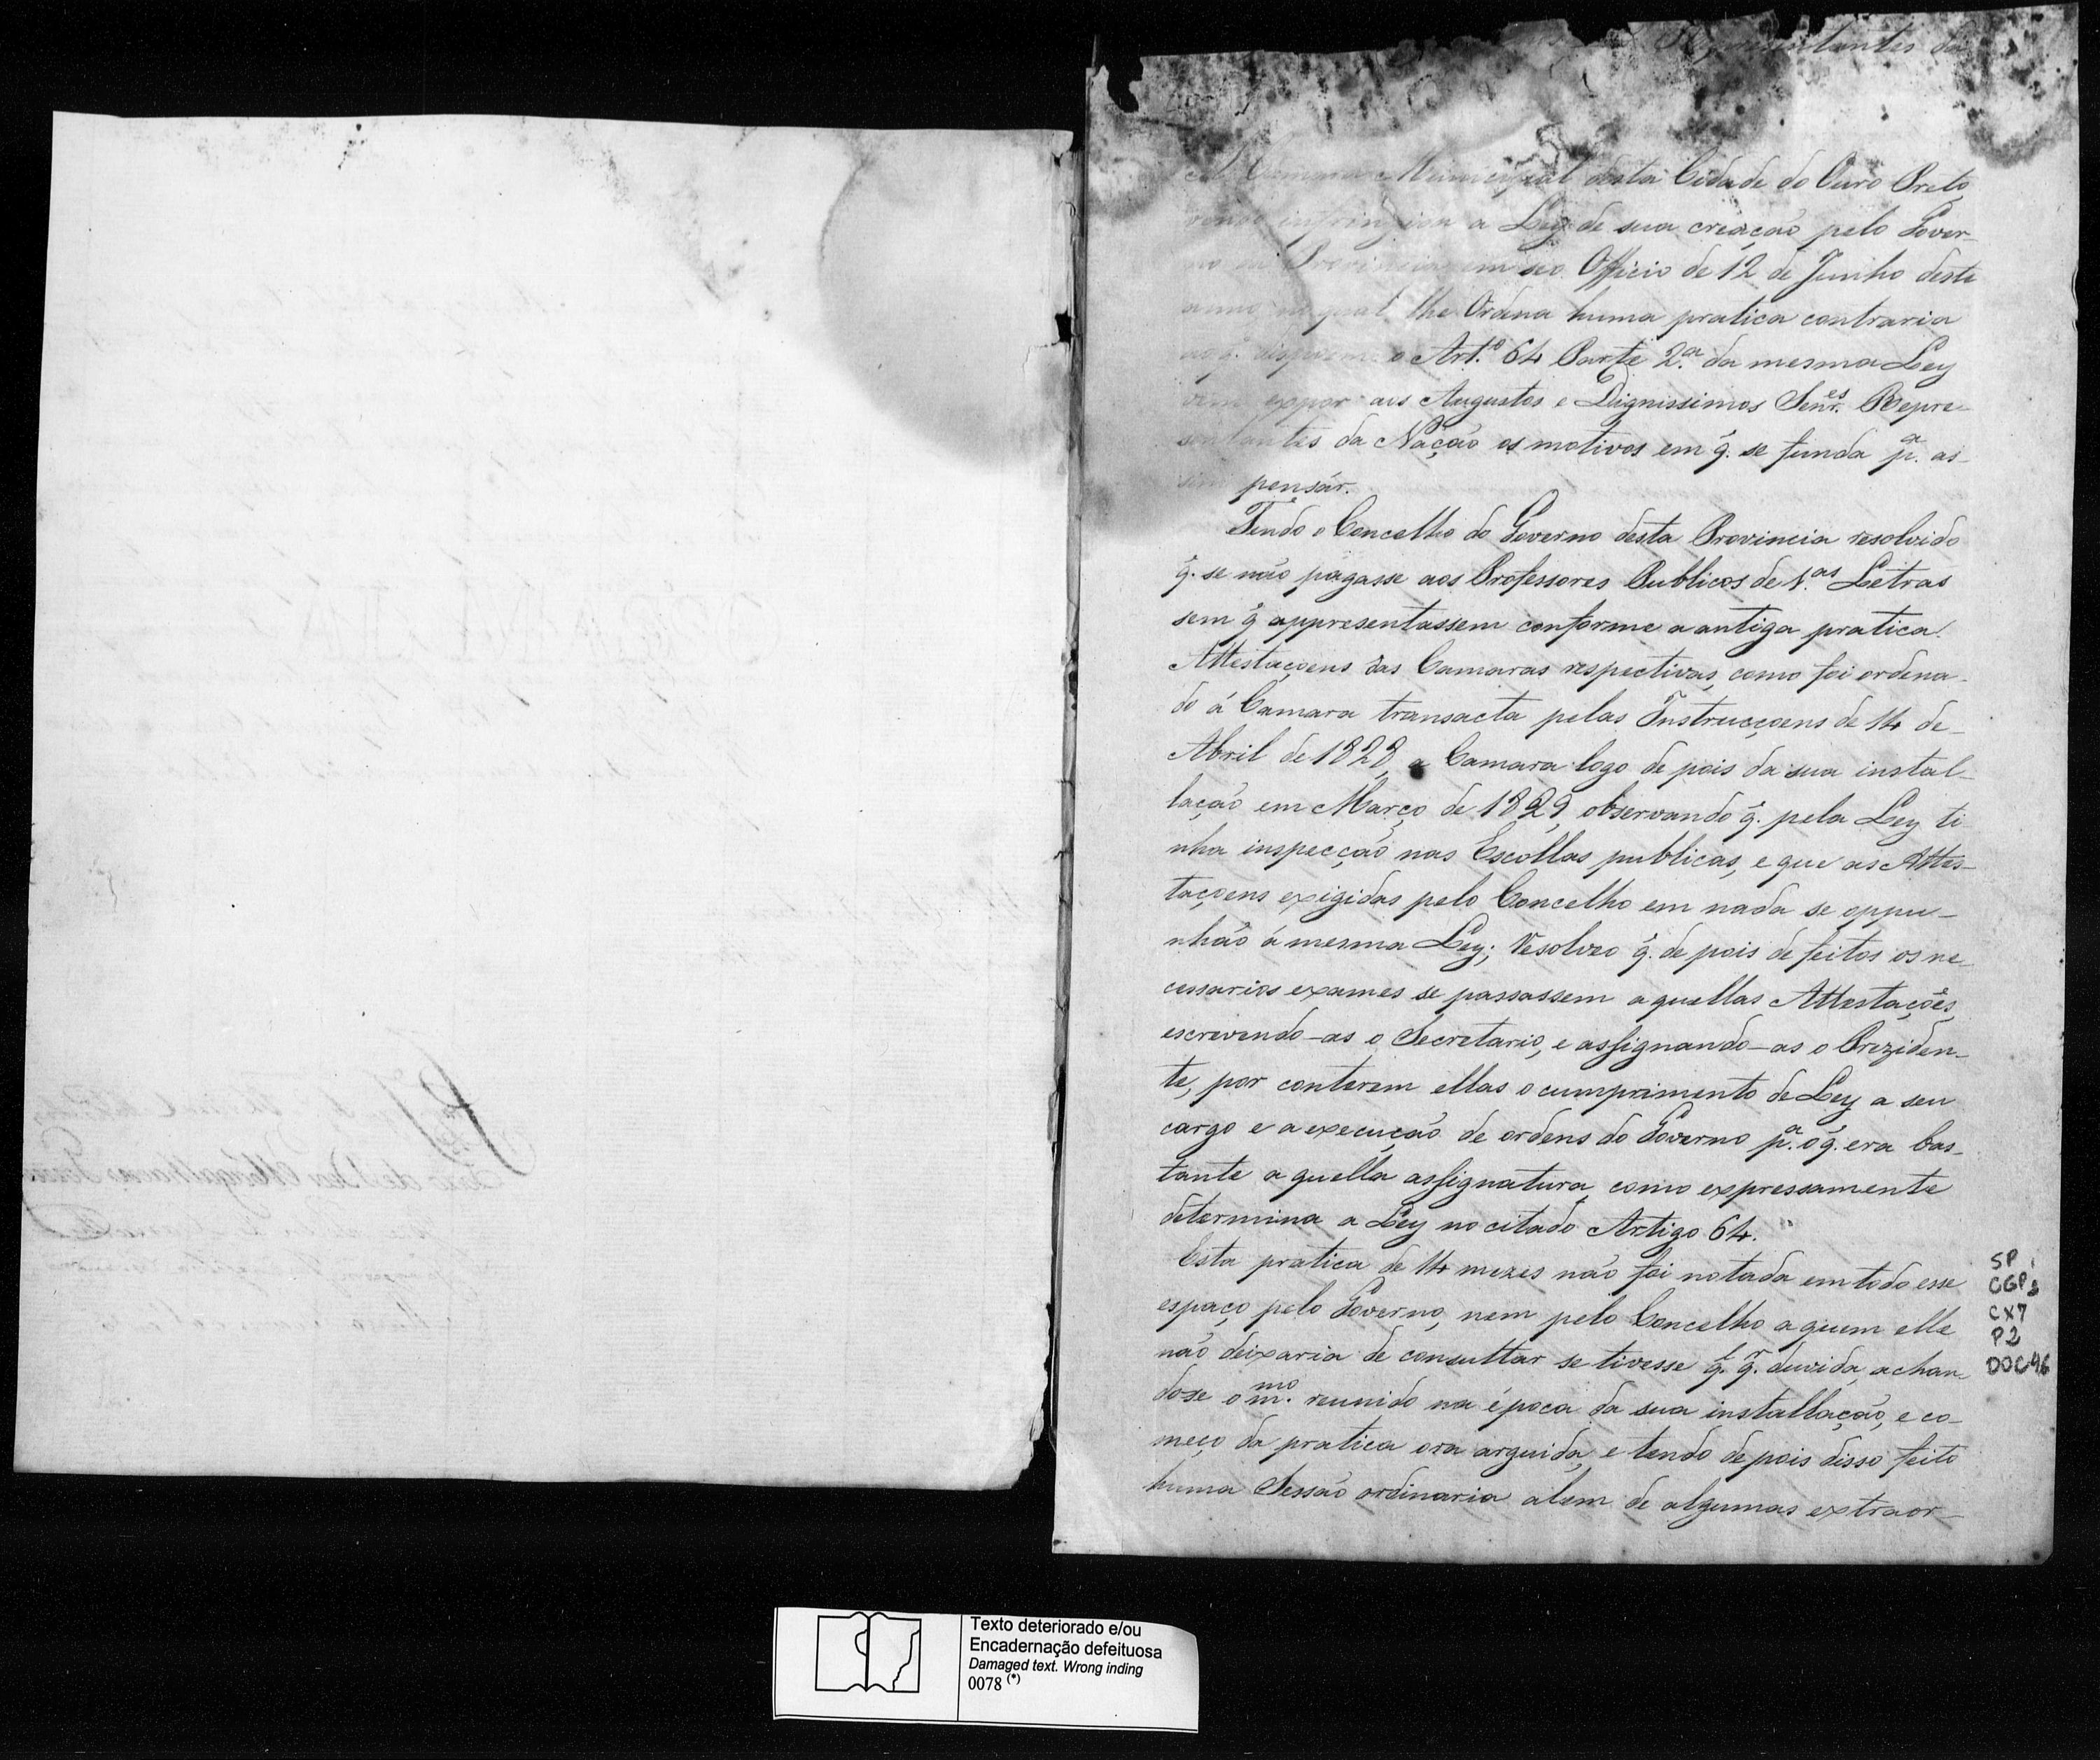 Representantes da
A Camara Municipal desta Cidade do Ouro Preto,
vendo infringida a Ley de sua creação pelo Gover-
no da Provincia em seo Officio de 12 de Junho deste
anno, no qual lhe Ordena huma pratica contraria
ao q̃. dispoem o Art.º 64 Parte 2.ª da mesma Ley
vem expor aos Augustos e Dignissimos Senr.es Repre-
sentantes da Nação os motivos em q̃. se funda p.ª as-
sim pensár.
Tendo o Concelho do Governo desta Provincia resolvido
q̃. se não pagasse aos Professores Publicos de 1.as Letras
sem q̃ appresentassem conforme a antiga pratica
Attestaçoens das Camaras respectivas, como foi ordena-
do á Camara transacta pelas Instrucçoens de 14 de
Abril de 1828, a Camara logo de pois da sua instal-
lação em Março de 1829, observando q̃. pela Ley ti-
nha inspecção nas Escollas publicas, e que as Attes-
taçoens exigidas pelo Concelho em nada se oppu-
nhão á mesma Ley; Resolveo q̃. de pois de feitos os ne-
cessarios exames se passassem a quellas Attestações,
escrevendo-as o Secretario, e assignando-as o Preziden-
te, por conterem ellas o cumprimento de Ley a seu
cargo e a execução de ordens do Governo p.ª o q̃. era bas-
tante a quella assignatura, como expressamente
determina a Ley no citado Artigo 64.
Esta pratica de 14 mezes não foi notada em todo esse
espaço pelo Governo, nem pelo Concelho a quem elle
não deixaria de consultar se tivesse q̃. q̃. duvida, achan-
dose o m.mo reunido na época da sua installação, e co-
meço da pratica ora arguida, e tendo de pois disso feito
huma Sessão ordinaria alem de algumas extraor-
SP
CGP3
CX7
P2
DOC46
Texto deteriorado e/ou
Encadernação defeituosa
Damaged text. Wrong inding
0078 (*)